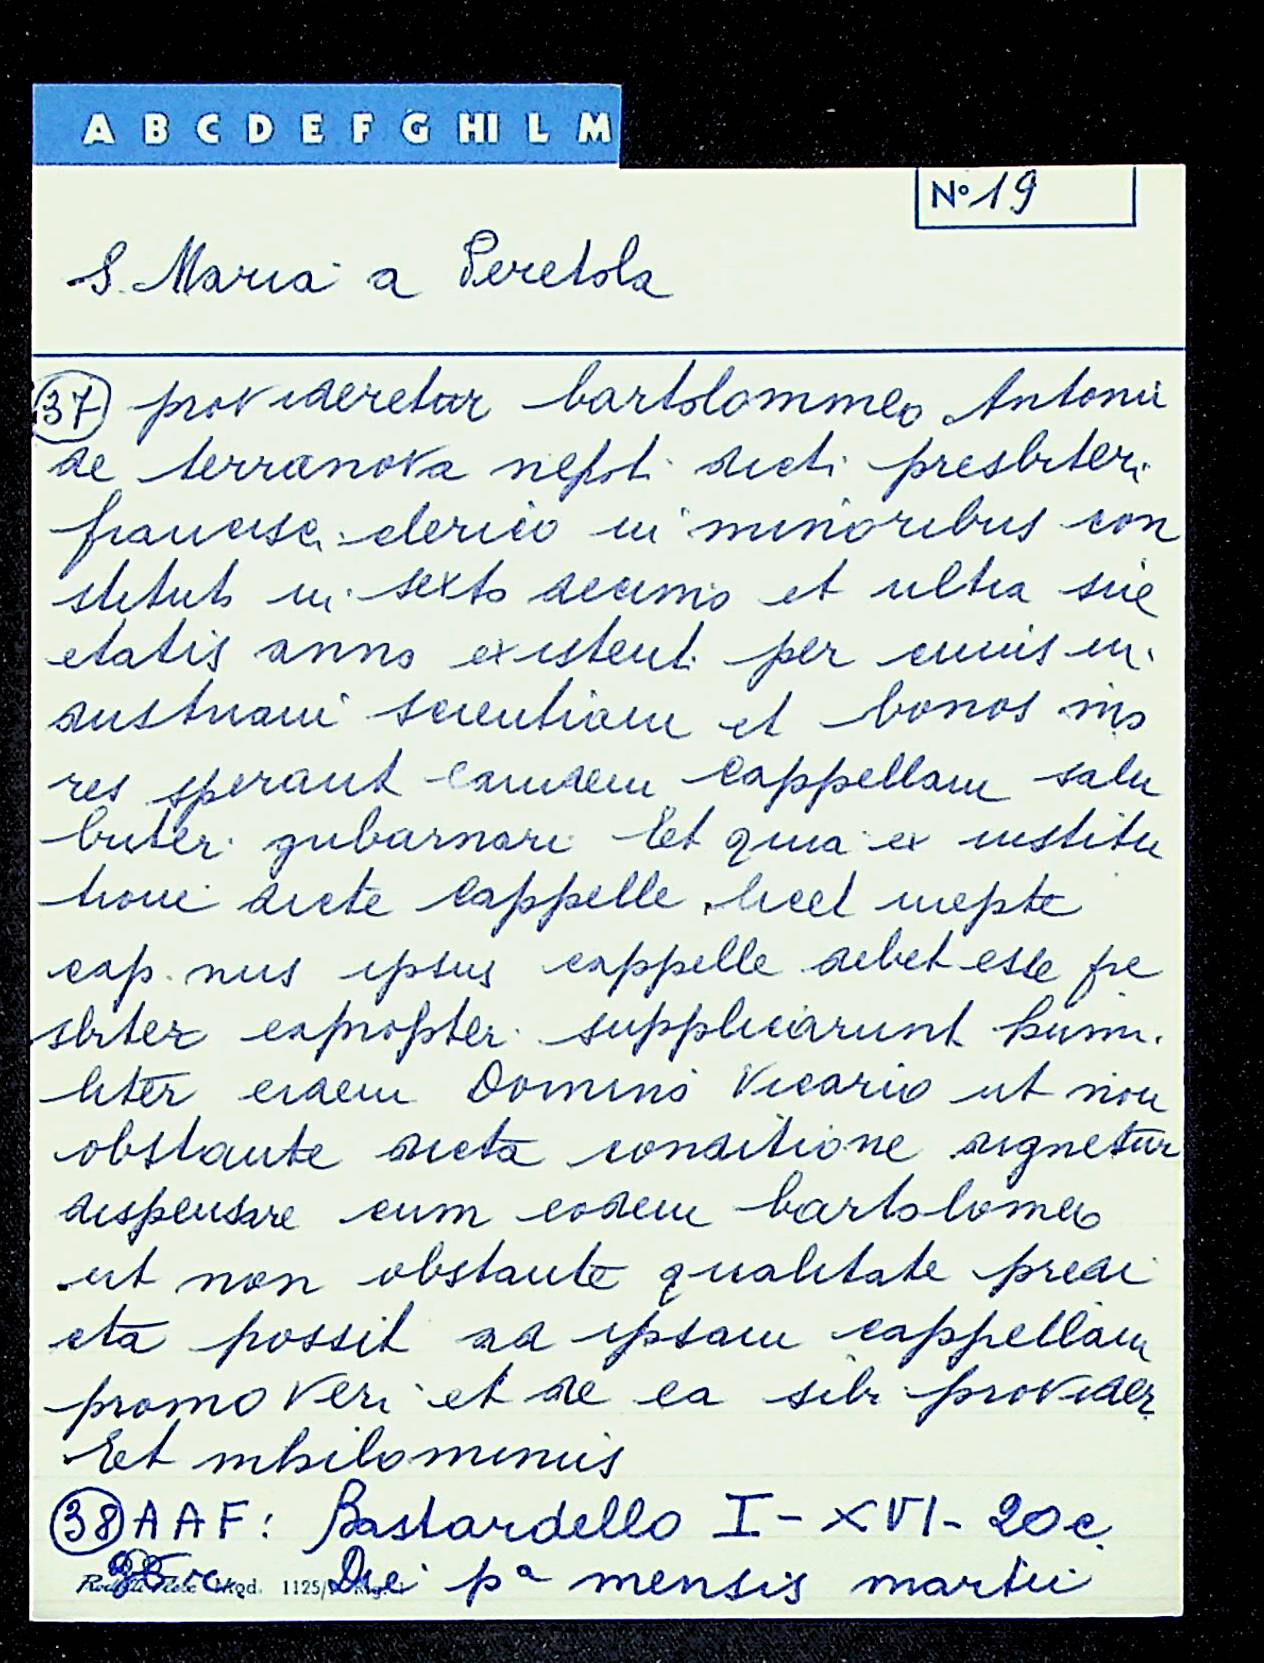 A B C D E F G HI L M
N° 19
S. Maria a Peretola
(37) provideretur bartolommeo Antonii
de terranova nepoti dicti presbiteri
francisci clerico in minoribus con
stituto in sexto decimo et ultra sue
etatis anno existenti per cuius in
dustriam scientiam et bonos mo
res sperant eamdem cappellam salu
briter gubarnari Et quia ex institu
tione dicte cappelle licet inepte
cap.nus ipsius cappelle debet esse pre
sbiter eapropter supplicarunt humi
liter eidem Domino Vicario ut non
obstante dicta conditione dignetur
dispensare cum eodem bartolomeo
ut non obstante qualitate predi
cta possit ad ipsam cappellam
promoveri et de ea sibi provider
Et nihilominus
(38) AAF: Bastardello I - XVI - 20 c.
Die pª mensis martii
Mod. 1125/